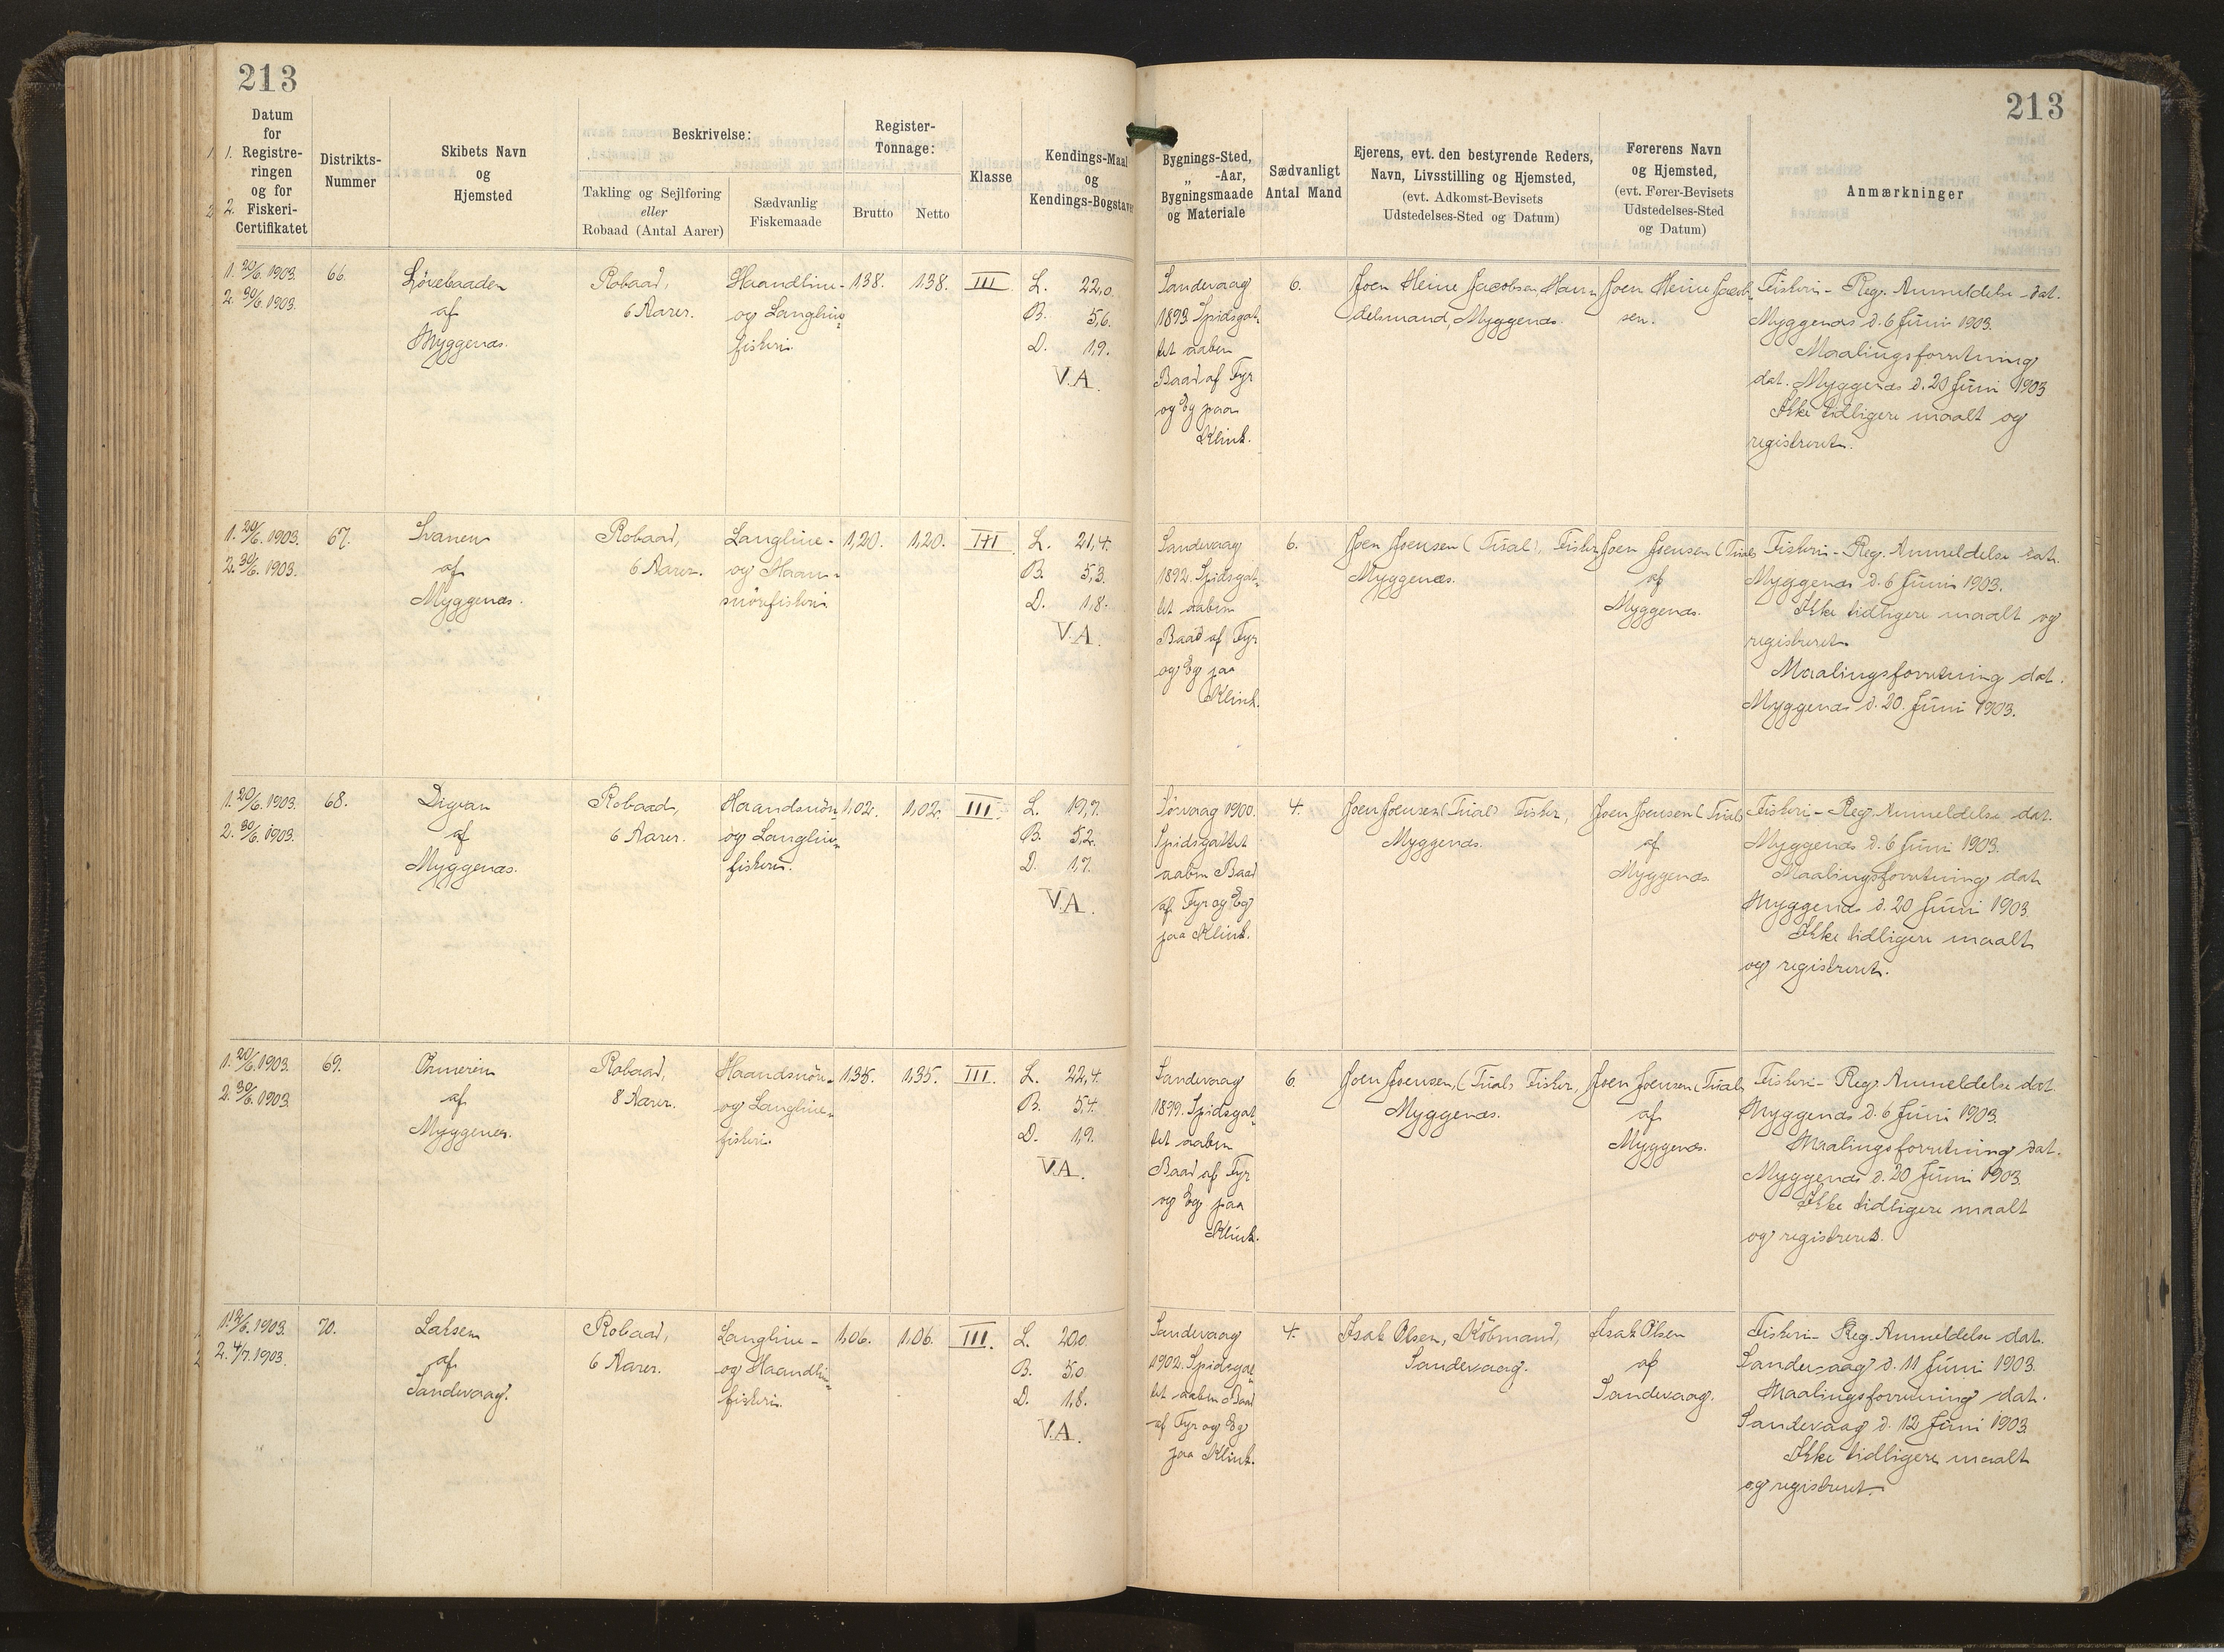 213
213
Datum
for
1. Registre-
ringen
og for
2. Fiskeri-
Certifikatet
Distrikts-
Nummer
Skibets Navn
og
Hjemsted
Beskrivelse:
Takling og Sejlføring
eller
Robaad (Antal Aarer)
Sædvanlig
Fiskemaade
Register-
Tonnage:
Brutto
Netto
Klasse
Kendings-Maal
og
Kendings-Bogstaver
Bygnings-Sted,
„ -Aar,
Bygningsmaade
og Materiale
Sædvanligt
Antal Mand
Ejerens, evt. den bestyrende Reders,
Navn, Livsstilling og Hjemsted,
(evt. Adkomst-Bevisets
Udstedelses-Sted og Datum)
Førerens Navn
og Hjemsted,
(evt. Fører-Bevisets
Udstedelses-Sted
og Datum)
Anmærkninger
1. 20/6. 1903.
2. 30/6. 1903.
66.
Lövebaaden
af
Myggenæs.
Robaad,
6 Aarer.
Haandline-
og Langline-
fiskeri.
1,38.
1,38.
III
L. 22,0.
B. 5,6.
D. 1,9.
V.A.
Sandevaag
1893. Spidsgat-
tet aaben
Baad af Fyr
og Eg paa
Klink.
6.
Joen Heine Jacobsen, Han-
delsmand, Myggenæs.
Joen Heine Jacob-
sen.
Fiskeri-Reg. Anmeldelse dat.
Myggenæs d. 6 Juni 1903.
Maalingsforretning
dat. Myggenæs d. 20 Juni 1903
Ikke tidligere maalt og
registreret.
1. 20/6. 1903.
2. 30/6. 1903.
67.
Svanen
af
Myggenæs.
Robaad,
6 Aarer.
Langline-
og Haand-
snörefiskeri
1,20.
1,20.
III
L. 21,4.
B. 5,3.
D. 1,8.
V.A.
Sandevaag
1892. Spidsgat-
tet aaben
Baad af Fyr
og Eg paa
Klink.
6.
Joen Joensen (Trial), Fisker
Myggenæs.
Joen Joensen (Trial)
af
Myggenæs.
Fiskeri-Reg. Anmeldelse dat.
Myggenæs d. 6 Juni 1903.
Ikke tidligere maalt og
registreret
Maalingsforretning dat.
Myggenæs d. 20. Juni 1903.
1. 20/6. 1903.
2. 30/6. 1903.
68.
af
Myggenæs.
Robaad,
6 Aarer.
Haandsnöre-
og Langline-
fiskeri.
1,02.
1,02.
III
L. 19,7.
B. 5,2.
D. 1,7.
V.A.
Sörvaag 1900.
Spidsgattet
aaben Baad
af Fyr og Eg
paa Klink.
4.
Joen Joensen (Trial) Fisker,
Myggenæs.
Joen Joensen (Trial)
af
Myggenæs
Fiskeri-Reg. Anmeldelse dat.
Myggenæs d. 6 Juni 1903.
Maalingsforretning dat
Myggenæs d. 20 Juni 1903.
Ikke tidligere maalt
og registreret.
1. 20/6. 1903.
2. 30/6. 1903.
69.
af
Myggenæs.
Robaad,
8 Aarer.
Haandsnöre-
og Langline-
fiskeri.
1,35.
1,35.
III.
L. 22,4.
B. 5,4.
D. 1,9.
V.A.
Sandevaag
1899. Spidsgat-
tet aaben
Baad af Fyr
og Eg paa
Klink.
6
Joen Joensen, (Trial) Fisker,
Myggenæs.
Joen Joensen (Trial)
af
Myggenæs.
Fiskeri-Reg. Anmeldelse dat.
Myggenæs d. 6 Juni 1903.
Maalingsforretning dat.
Myggenæs d. 20 Juni 1903.
Ikke tidligere maalt
og registreret.
2. 4/7. 1903.
70.
Laksen
af
Sandevaag.
Robaad,
6 Aarer.
Langline-
og Haandline-
fiskeri.
1,06.
1,06.
III.
L. 20,0
B. 5,0
D. 1,8.
V.A.
Sandevaag
1902. Spidsgat-
tet aaben Baad
af Fyr og Eg
paa Klink.
4.
Isak Olsen, Köbmand,
Sandevaag.
Isak Olsen
af
Sandevaag.
Fiskeri-Reg. Anmeldelse dat.
Sandevaag d. 11 Juni 1903.
Maalingsforretning dat.
Sandevaag d. 12 Juni 1903.
Ikke tidligere maalt
og registreret.